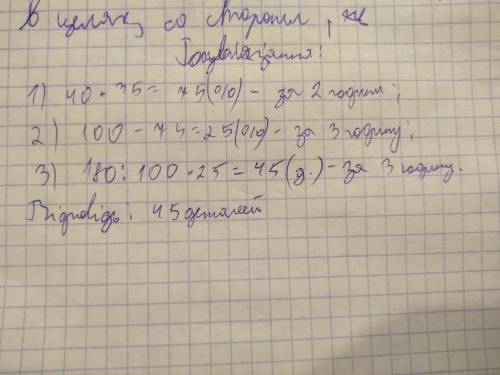 в целях, со сторони,
Розв'язання:
1) 40 + 35 = 75(%) - за 2 години;
2) 100 - 75 = 25(%) - за 3 годину;
3) 180 : 100 · 25 = 45(д.) - за 3 годину.
Відповідь: 45 деталей